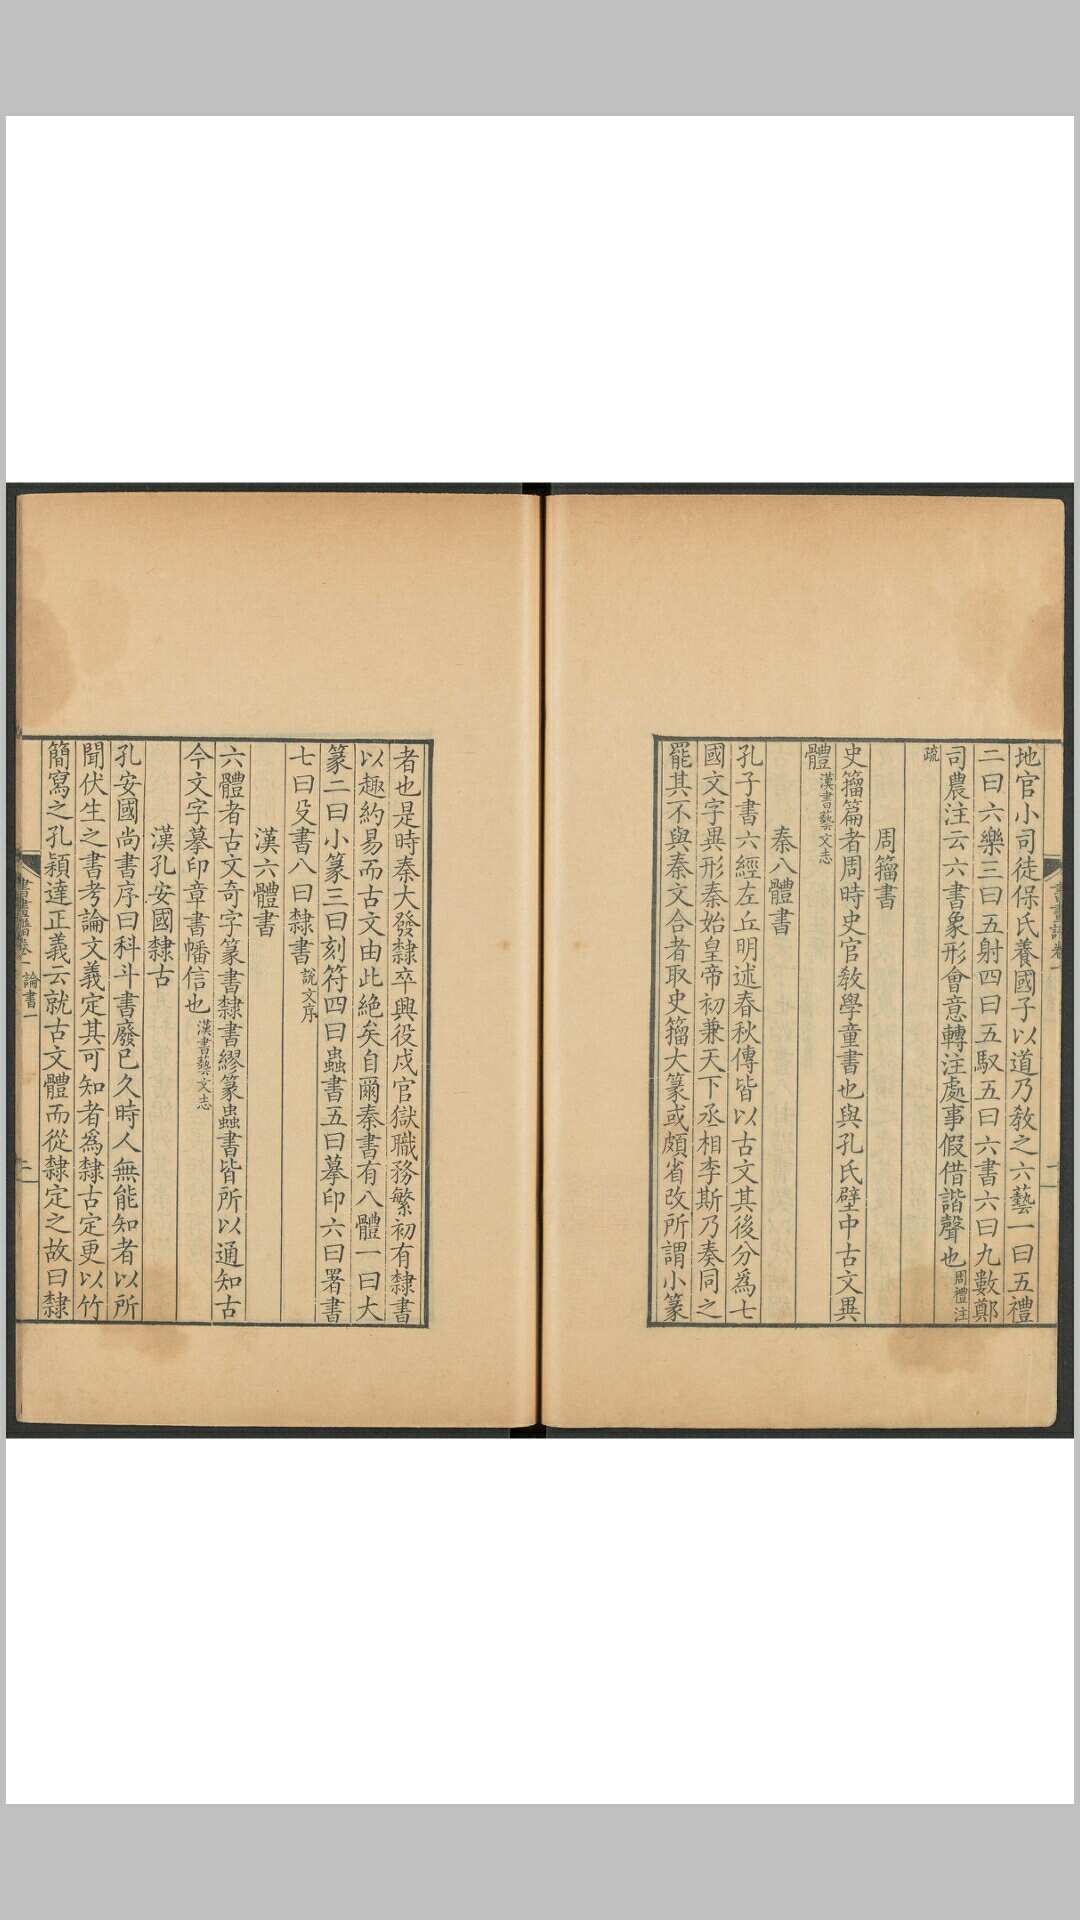 地官小司徒保氏養國子以道乃敎之六藝一曰五禮
二曰六樂三曰五射四曰五馭五曰六書六曰九數鄭
司農注云六書象形會意轉注處事假借諧聲也周禮注
疏
周籀書
史籀篇者周時史官敎學童書也與孔氏壁中古文異
體漢書藝文志
秦八體書
孔子書六經左丘明述春秋傳皆以古文其後分爲七
國文字異形秦始皇帝初兼天下丞相李斯乃奏同之
罷其不與秦文合者取史籀大篆或頗省改所謂小篆
者也是時秦大發隸卒興役戍官獄職務繁初有隸書
以趣約易而古文由此絶矣自爾秦書有八體一曰大
篆二曰小篆三曰刻符四曰蟲書五曰摹印六曰署書
七曰殳書八曰隸書說文序
漢六體書
六體者古文奇字篆書隸書繆篆蟲書皆所以通知古
今文字摹印章書幡信也漢書藝文志
漢孔安國隸古
孔安國尚書序曰科斗書廢已久時人無能知者以所
聞伏生之書考論文義定其可知者爲隸古定更以竹
簡寫之孔穎達正義云就古文體而從隸定之故曰隸
論書一